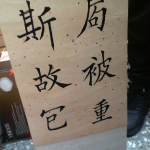 局被重
斯故包